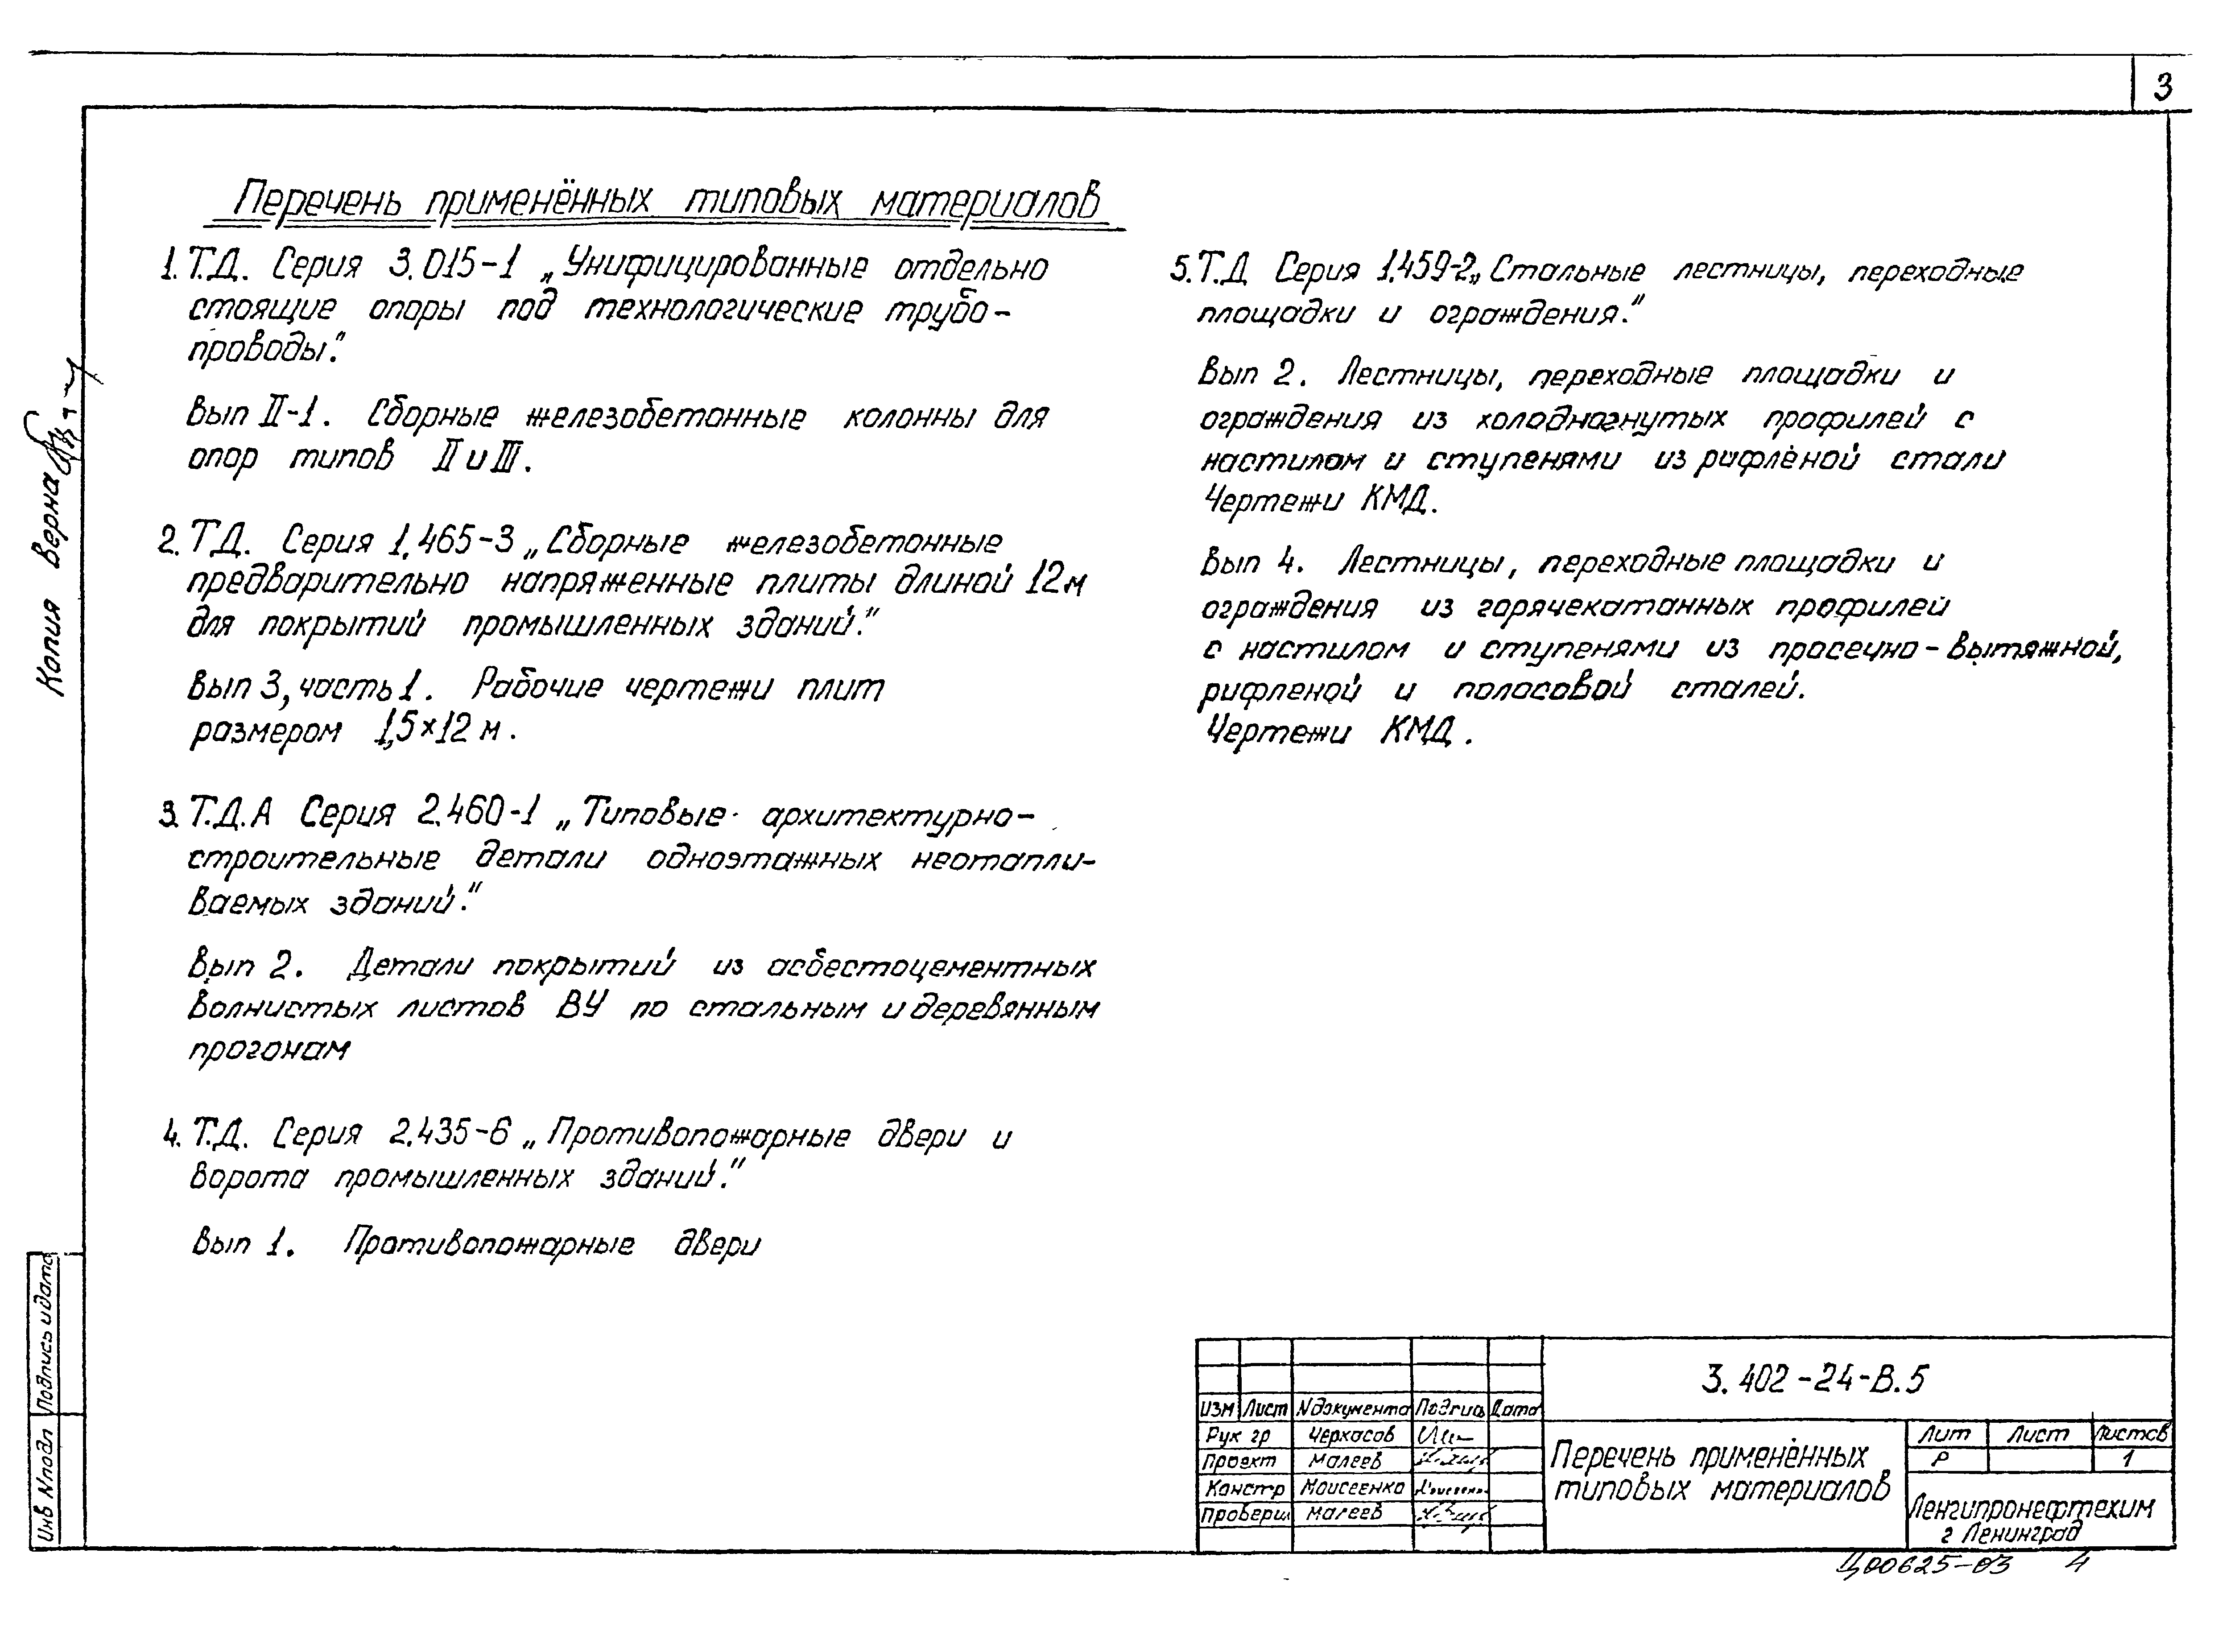 3
Перечень применённых типовых материалов
1. Т.Д. Серия 3.015-1 „Унифицированные отдельно
стоящие опоры под технологические трубо-
проводы."
Вып II-1. Сборные железобетонные колонны для
опор типов II и III.
2. Т.Д. Серия 1.465-3 „Сборные железобетонные
предварительно напряженные плиты длиной 12м
для покрытий промышленных зданий."
Вып 3, часть 1. Рабочие чертежи плит
размером 1,5×12 м.
3. Т.Д.А Серия 2.460-1 „Типовые архитектурно-
строительные детали одноэтажных неотапли-
ваемых зданий."
Вып 2. Детали покрытий из асбестоцементных
волнистых листов ВУ по стальным и деревянным
прогонам
4. Т.Д. Серия 2.435-6 „Противопожарные двери и
ворота промышленных зданий."
Вып 1. Противопожарные двери
5. Т.Д Серия 1.459-2 „Стальные лестницы, переходные
площадки и ограждения."
Вып 2. Лестницы, переходные площадки и
ограждения из холодногнутых профилей с
настилом и ступенями из рифлёной стали
Чертежи КМД.
Вып 4. Лестницы, переходные площадки и
ограждения из горячекатанных профилей
с настилом и ступенями из просечно-вытяжной,
рифленой и полосовой сталей.
Чертежи КМД.
Копия верна
Подпись и дата
Инв N подл
3.402-24-В.5
Изм Лист N документа Подпись Дата
Рук гр Черкасов
Проект Малеев
Констр Моисеенко
Проверил Малеев
Перечень применённых
типовых материалов
Лит Лист Листов
Р 1
Ленгипронефтехим
г Ленинград
Ц00625-03 4